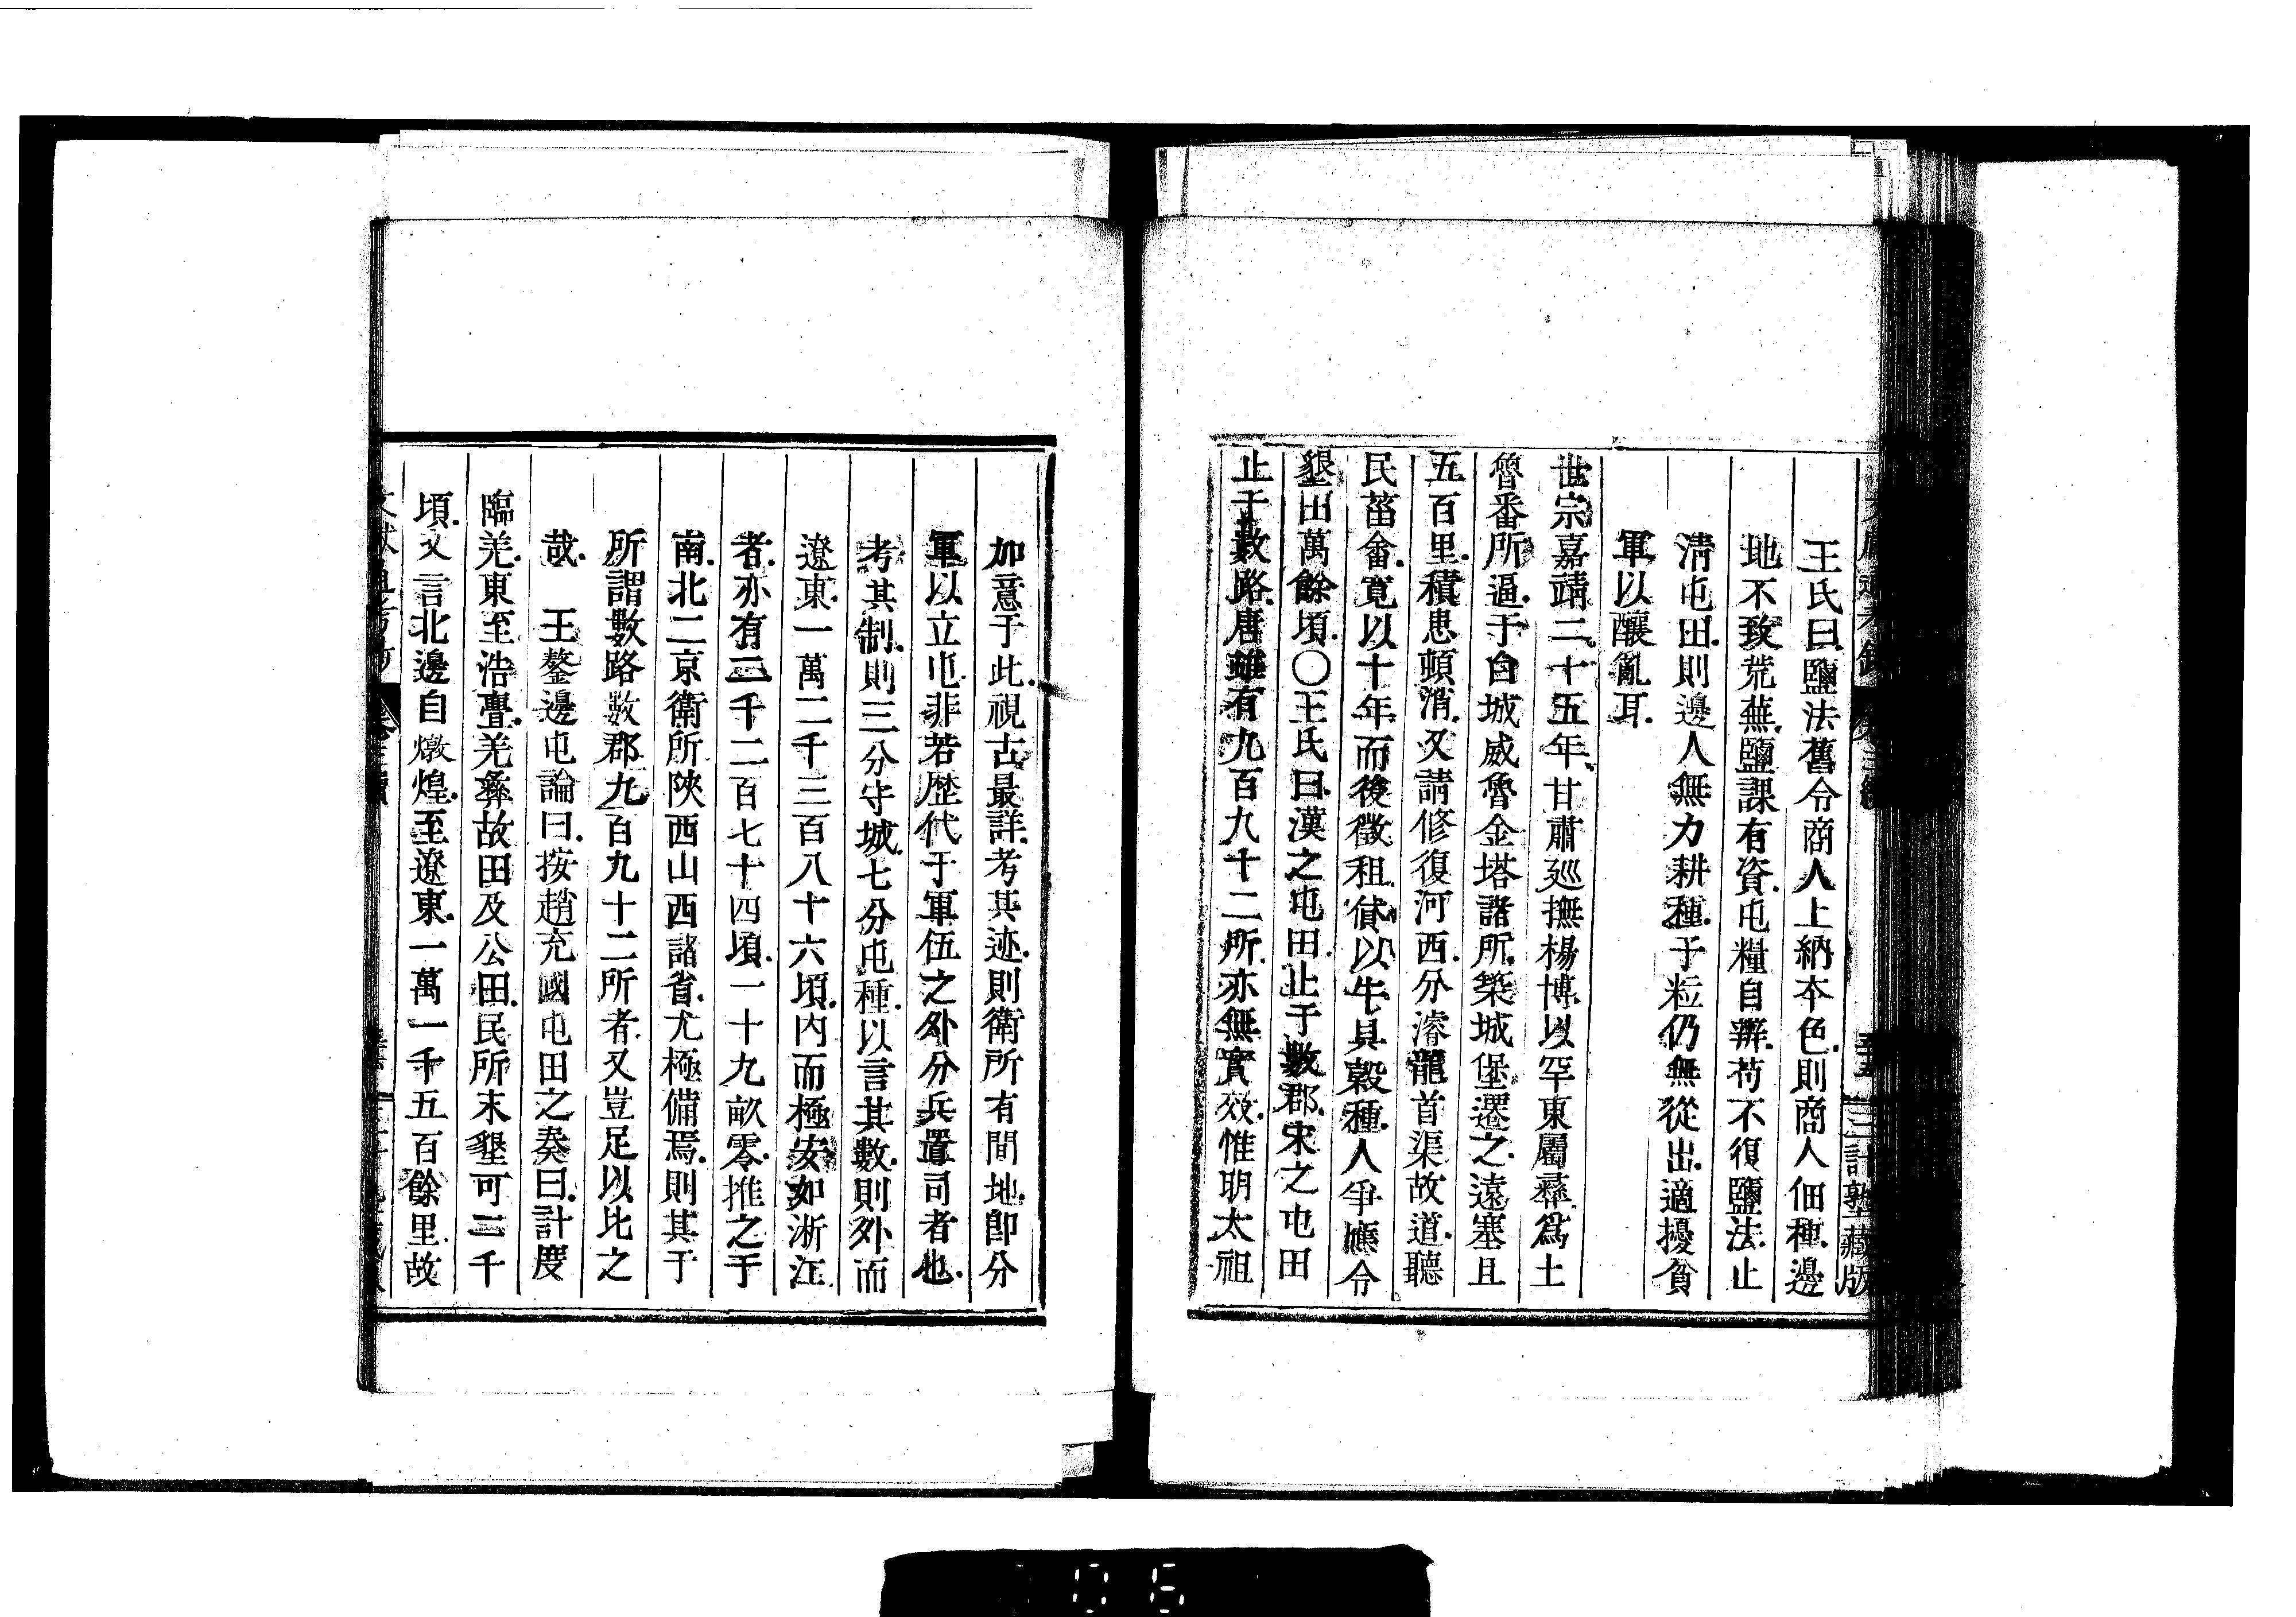 三計塾藏版
王氏曰鹽法舊令商人上納本色則商人佃種邊
地不致荒蕪鹽課有資屯糧自辦苟不復鹽法止
清屯田則邊人無力耕種子粒仍無從出適擾貧
軍以釀亂耳
世宗嘉靖二十五年甘肅廵撫楊博以罕東屬彞爲土
魯番所逼于白城威魯金塔諸所築城堡遷之遠塞且
五百里積患頓消又請修復河西分濬龍首渠故道聽
民菑畬寛以十年而後徵租貸以牛具穀種人爭應令
墾田萬餘頃〇王氏曰漢之屯田止于數郡宋之屯田
止于數路唐雖有九百九十二所亦無實效惟明太祖
加意于此視古最詳考其迹則衛所有間地卽分
軍以立屯非若歷代于軍伍之外分兵置司者也
考其制則三分守城七分屯種以言其數則外而
遼東一萬二千三百八十六頃內而極安如浙江
者亦有二千二百七十四頃一十九畝零推之于
南北二京衛所陝西山西諸省尤極備焉則其于
所謂數路數郡九百九十二所者又豈足以比之
哉　王鏊邊屯論曰按趙充國屯田之奏曰計度
臨羌東至浩亹羌彞故田及公田民所未墾可二千
頃又言北邊自燉煌至遼東一萬一千五百餘里故